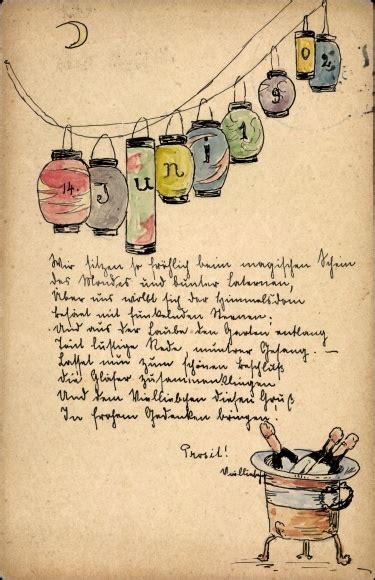 14. Juni 1902
Wir sitzen so fröhlich beim magischen Schein
des Mondes und bunter Laternen,
Über uns wölbt sich der Himmelsdom
besäet mit funkelnden Sternen.
Und aus der Laube den Garten entlang
Tönt lustige Rede, muntrer Gesang. —
Lasset nun zum schönen Beschluß
die Gläser zusammenklingen
Und dem Vielliebchen diesen Gruß
In frohem Gedenken bringen!
Prosit!